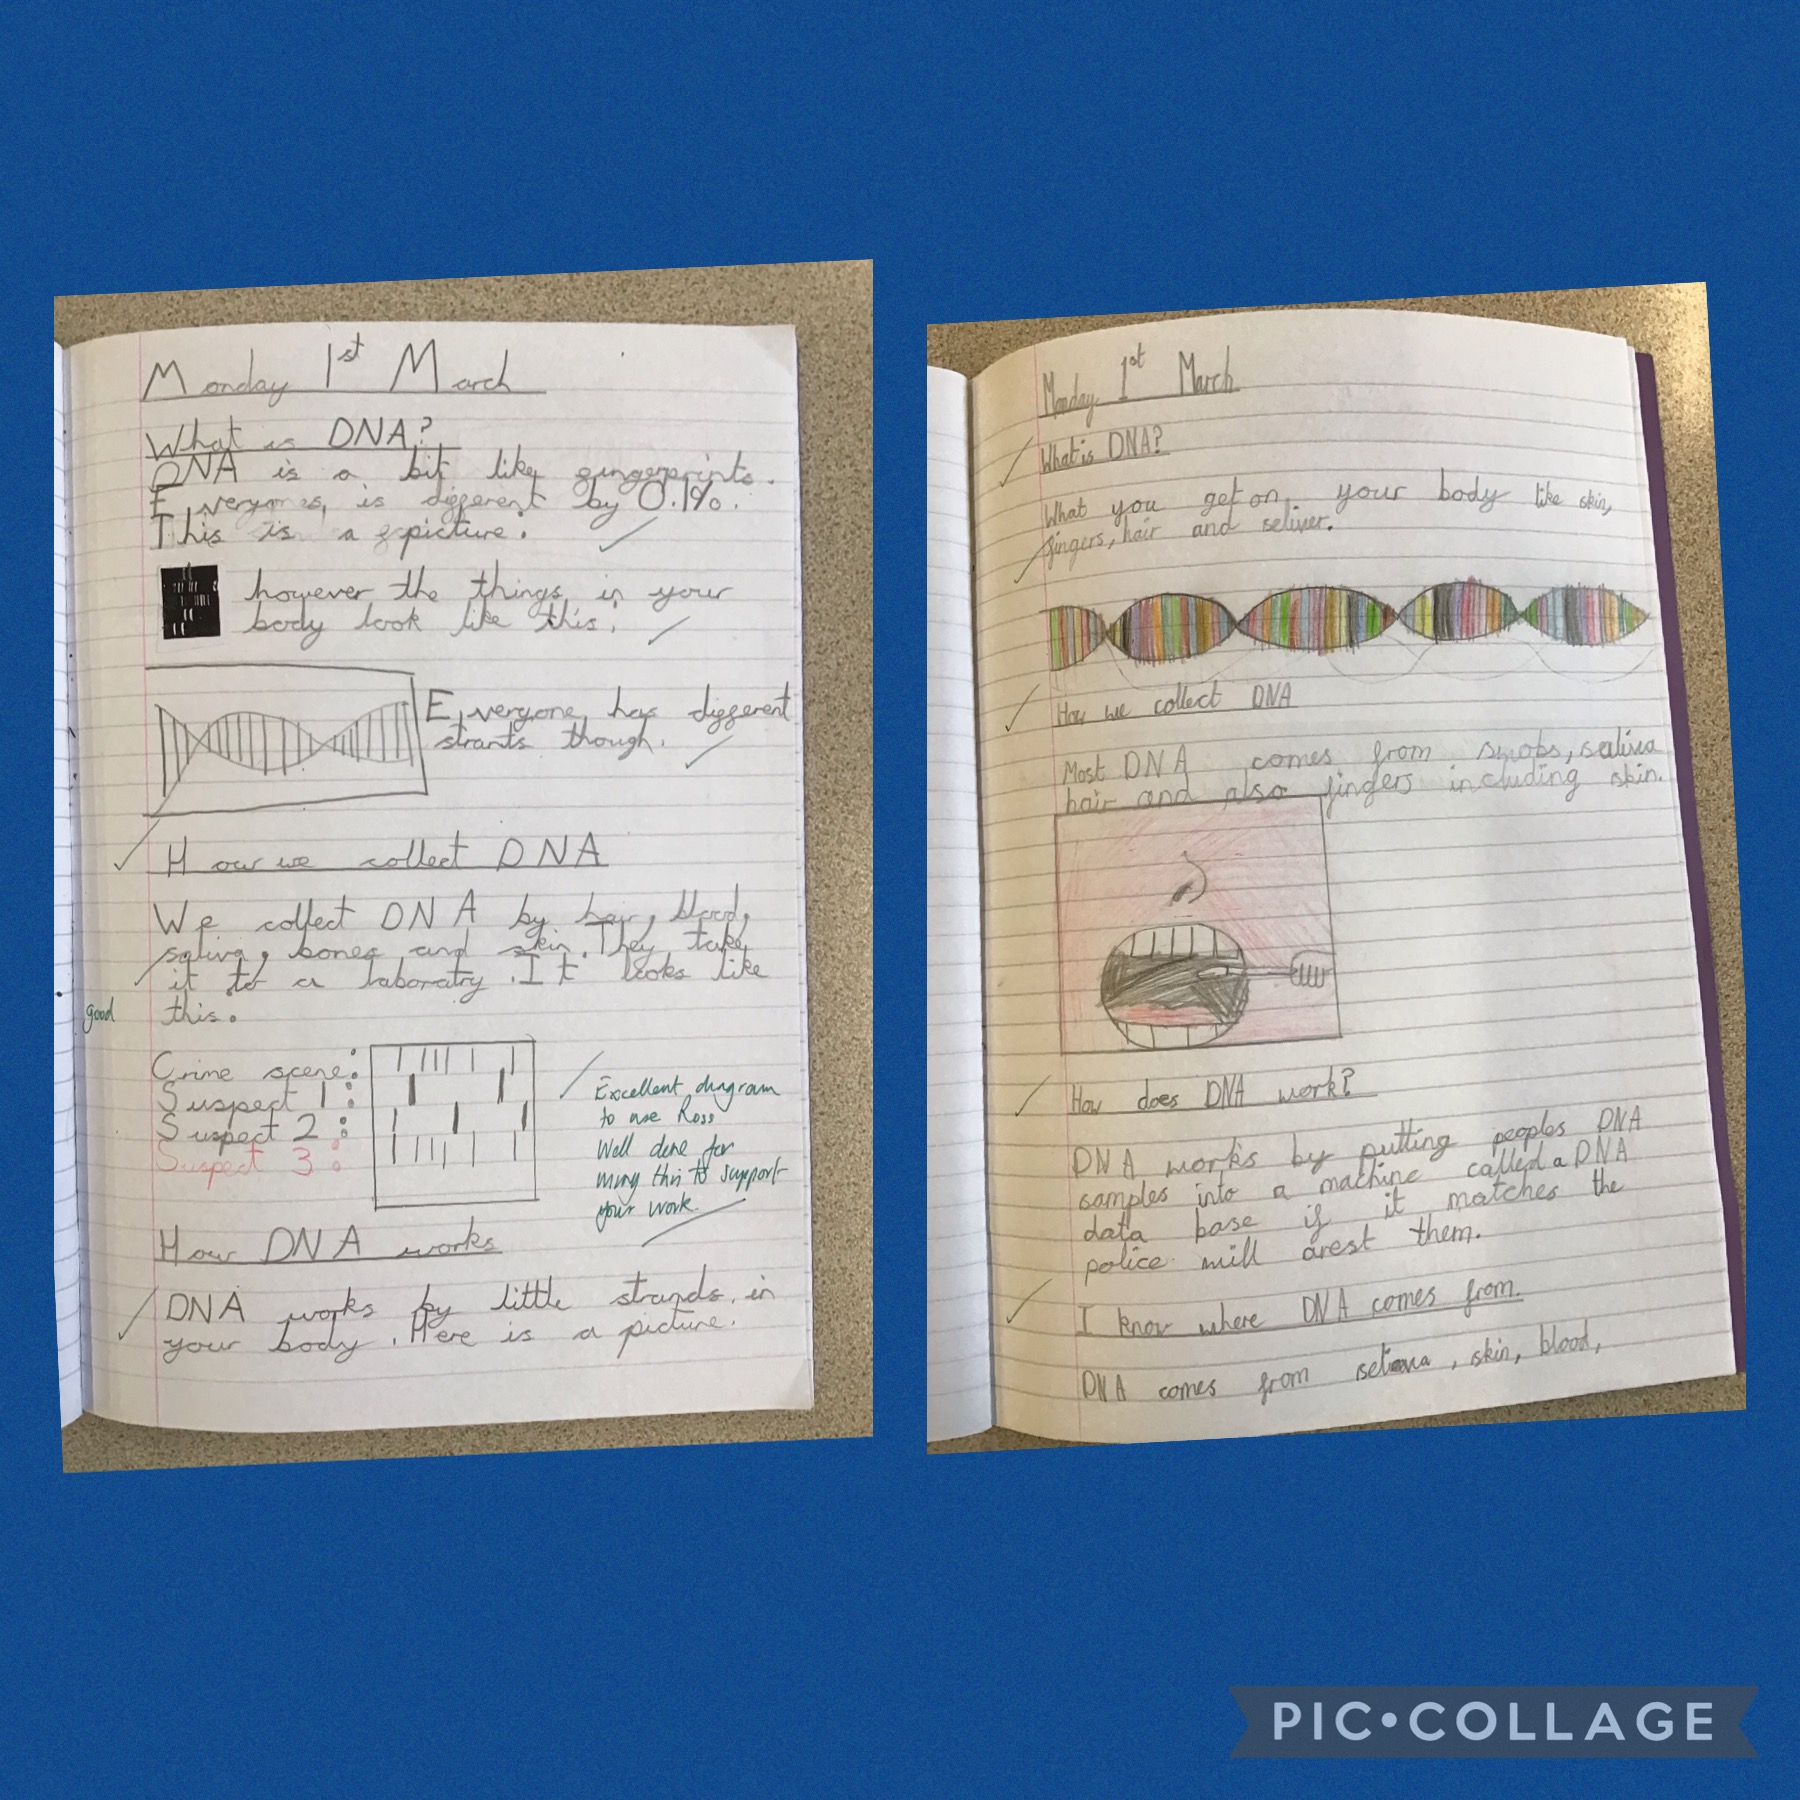 Monday 1st March
What is DNA?
DNA is a bit like fingerprints.
Everyones, is different by 0.1%.
This is a picture.
however the things in your
body look like this.
Everyone has different
strants though.
How we collect DNA
We collect DNA by hair, blood,
saliva, bones and skin. They take
it to a laboratry. It looks like
this.
good
Crime scene:
Suspect 1:
Suspect 2:
Suspect 3:
Excellent diagram
to use Ross
Well done for
using this to support
your work.
How DNA works
DNA works by little strands in
your body. Here is a picture.
Monday 1st March
What is DNA?
What you get on your body like skin,
fingers, hair and seliver.
How we collect DNA
Most DNA comes from swobs, saliva
hair and also fingers including skin.
How does DNA work?
DNA works by putting peoples DNA
samples into a machine called a DNA
data base if it matches the
police will arest them.
I know where DNA comes from.
DNA comes from , skin, blood,
PIC•COLLAGE